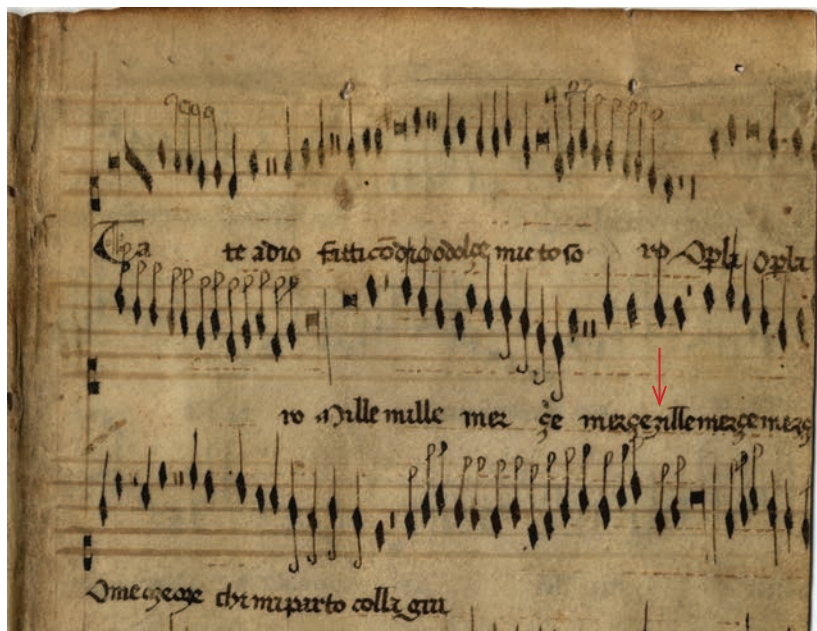 te adio fatti cō dio o dolçe mie toso ro Opla Opla
ro Mille mille mer çe merçe mille merçe merç
Ome çeo che chi mi parto colla giu